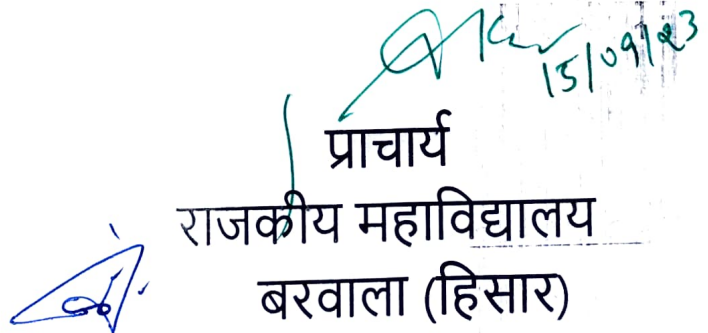 15/09/23
प्राचार्य
राजकीय महाविद्यालय
बरवाला (हिसार)